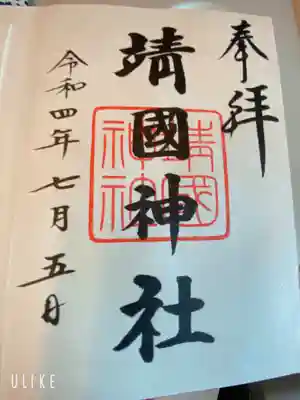 奉拝
靖國神社
令和四年七月五日
ULIKE